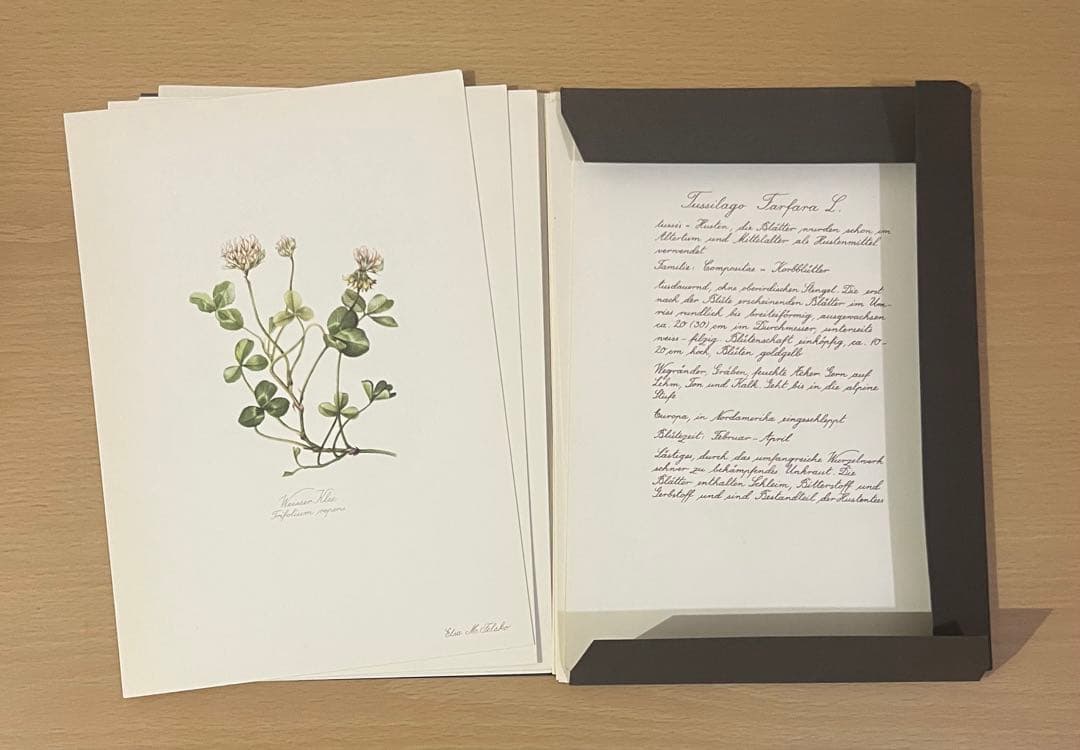 Weisser Klee
Trifolium repens
Elsa M. Felsko
Tussilago Farfara L.
tussis - Husten, die Blätter wurden schon im
Altertum und Mittelalter als Hustenmittel
verwendet
Familie: Compositae - Korbblütler
Ausdauernd, ohne oberirdischen Stengel. Die erst
nach der Blüte erscheinenden Blätter im Um-
riss rundlich bis breiteiförmig, ausgewachsen
ca. 20 (30) cm im Durchmesser, unterseits
weiss-filzig. Blütenschaft einköpfig, ca. 10-
20 cm hoch, Blüten goldgelb
Wegränder, Gräben, feuchte Äcker. Gern auf
Lehm, Ton und Kalk. Geht bis in die alpine
Stufe
Europa, in Nordamerika eingeschleppt
Blütezeit: Februar - April
Lästiges, durch das umfangreiche Wurzelwerk
schwer zu bekämpfendes Unkraut. Die
Blätter enthalten Schleim, Bitterstoff und
Gerbstoff und sind Bestandteil der Hustentees